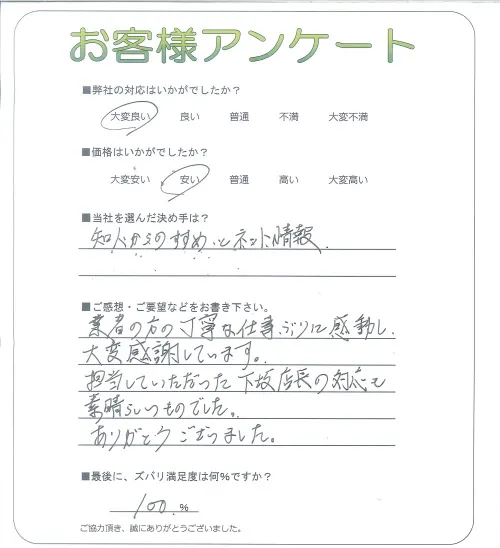 お客様アンケート
■弊社の対応はいかがでしたか？
大変良い 良い 普通 不満 大変不満
■価格はいかがでしたか？
大変安い 安い 普通 高い 大変高い
■当社を選んだ決め手は？
知人からのすすめとネット情報.
■ご感想・ご要望などをお書き下さい。
業者の方の丁寧な仕事ぶりに感動し.
大変感謝しています。
担当していただった下坂店長の対応も
素晴らしいものでした。
ありがとうございました。
■最後に、ズバリ満足度は何%ですか？
100.%
ご協力頂き、誠にありがとうございました。